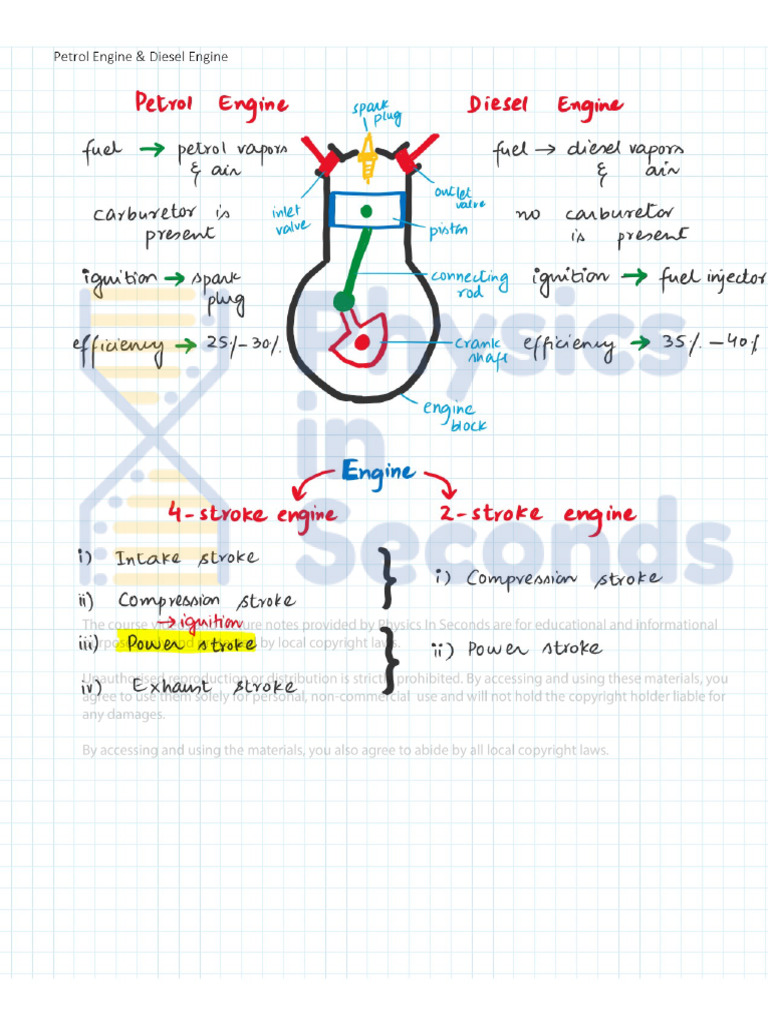 Petrol Engine & Diesel Engine
Petrol Engine
fuel → petrol vapors
& air
carburetor is
present
ignition → spark
plug
efficiency → 25% - 30%
spark
plug
inlet
valve
outlet
valve
piston
connecting
rod
crank
shaft
engine
block
Diesel Engine
fuel → diesel vapors
& air
no carburetor
is present
ignition → fuel injector
efficiency → 35% - 40%
Physics
in
Seconds
Engine
4-stroke engine
i) Intake stroke
ii) Compression stroke
→ ignition
iii) Power stroke
iv) Exhaust stroke
2-stroke engine
i) Compression stroke
ii) Power stroke
The course notes provided by Physics In Seconds are for educational and informational
by local copyright laws.
Unauthorised reproduction or distribution is strictly prohibited. By accessing and using these materials, you
agree to use them solely for personal, non-commercial use and will not hold the copyright holder liable for
any damages.
By accessing and using the materials, you also agree to abide by all local copyright laws.